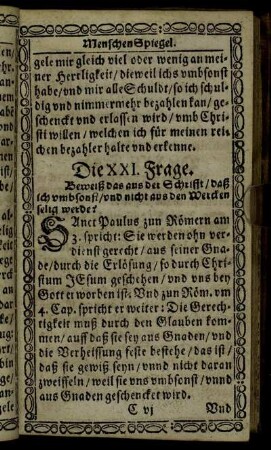 Menschen Spiegel.
gele mir gleich viel oder wenig an mei-
ner Herrligkeit / dieweil ichs vmbsonst
habe / vnd mir alle Schuldt / so ich schul-
dig vnd nimmermehr bezahlen kan / ge-
schenckt vnd erlassen wird / vmb Chri-
sti willen / welchen ich für meinen rei-
chen bezahler halte vnd erkenne.
Die XXI. Frage.
Beweiß das aus der Schrifft / daß
ich vmbsonst / vnd nicht aus den Wercken
selig werde?
SAnct Paulus zun Römern am
3. spricht: Sie werden ohn ver-
dienst gerecht / aus seiner Gna-
de / durch die Erlösung / so durch Chri-
stum JEsum geschehen / vnd vns bey
Gott erworben ist: Vnd zun Röm. am
4. Cap. spricht er weiter: Die Gerech-
tigkeit muß durch den Glauben kom-
men / auff daß sie sey aus Gnaden / vnd
die Verheissung feste bestehe / das ist /
daß sie gewiß seyn / vnnd nicht daran
zweiffeln / weil sie vns vmbsonst / vnnd
aus Gnaden geschencket wird.
C vj Vnd